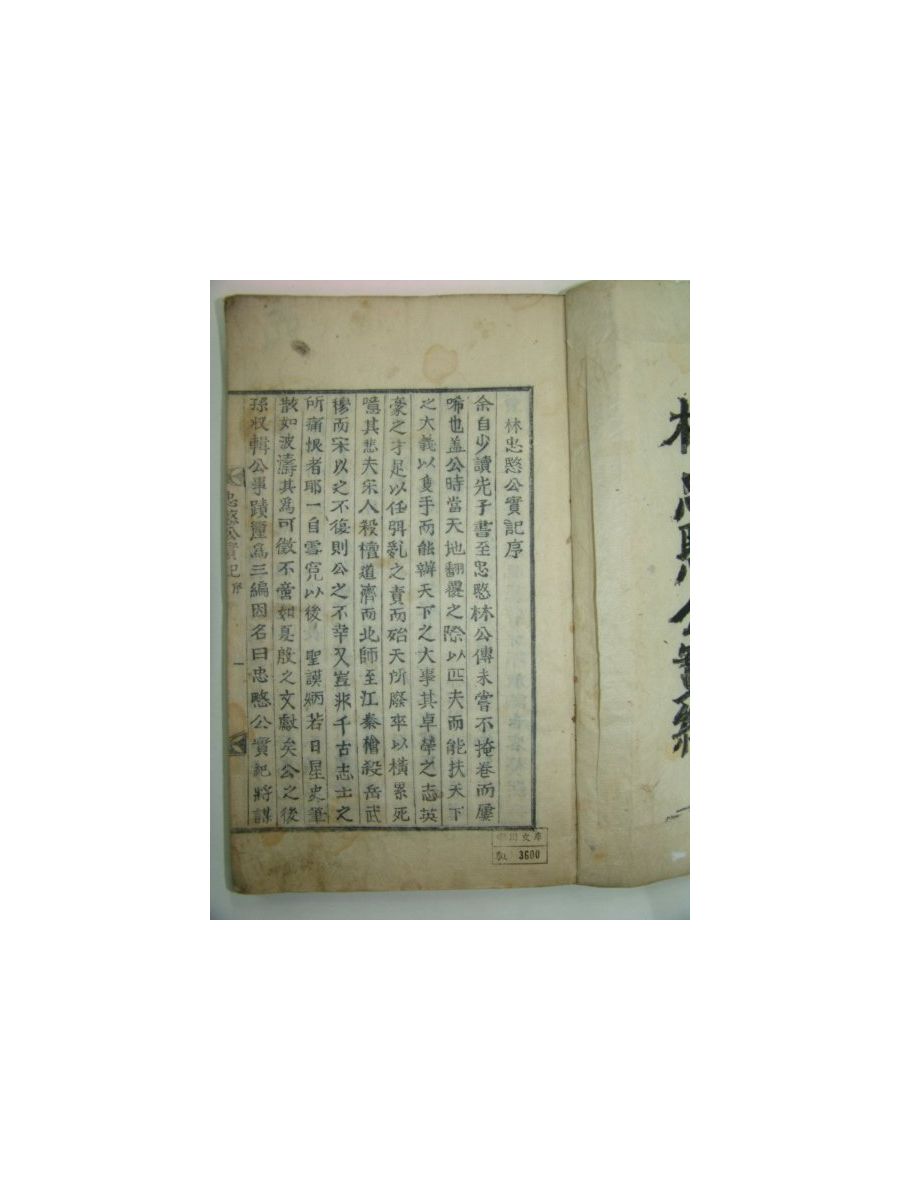 林忠愍公實記序
余自少讀先子書至忠愍林公傳未嘗不掩卷而屢
唏也盖公時當天地翻覆之際以匹夫而能扶天下
之大義以隻手而能辦天下之大事其卓犖之志英
豪之才足以任弭亂之責而殆天所廢卒以橫罹死
噫其悲夫宋人殺檀道濟而北師至江秦檜殺岳武
穆而宋以之不復則公之不幸又豈非千古志士之
所痛恨者耶一自雪冤以後 聖謨炳若日星史筆
散如波濤其爲可徵不啻如夏殷之文獻矣公之後
孫收輯公事蹟釐爲三編因名曰忠愍公實記將謀
忠愍公實記 序
一
文庫
3600
林忠愍公實